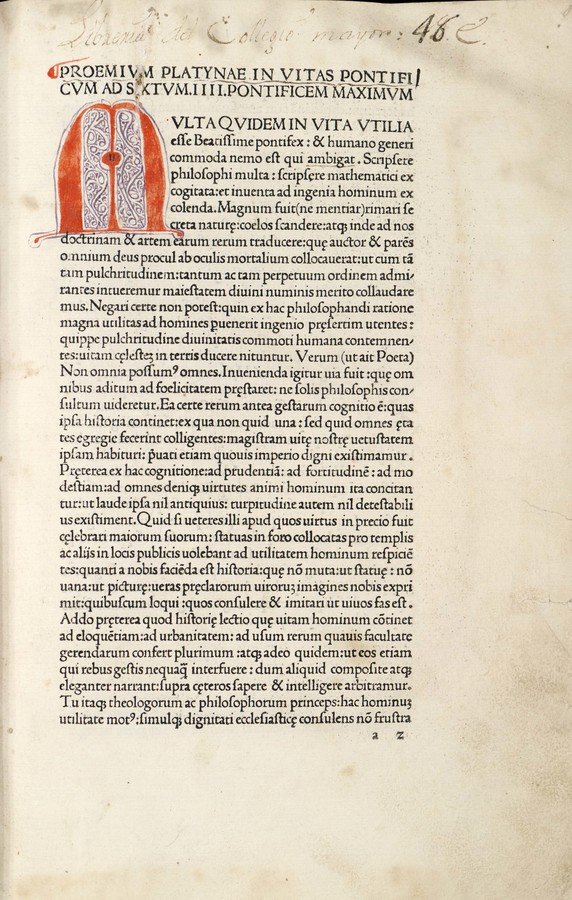 Libreria del Collegio mayor: 48. C.
PROEMIVM PLATYNAE IN VITAS PONTIFI
CVM AD SIXTVM.IIII.PONTIFICEM MAXIMVM
MVLTA QVIDEM IN VITA VTILIA
esse Beatissime pontifex: & humano generi
commoda nemo est qui ambigat. Scripsere
philosophi multa: scripsere mathematici ex
cogitata:et inuenta ad ingenia hominum ex
colenda. Magnum fuit(ne mentiar)rimari se
creta naturę:coelos scandere:atq; inde ad nos
doctrinam & artem earum rerum traducere:quę auctor & parēs
omnium deus procul ab oculis mortalium collocauerat:ut cum tā
tam pulchritudinem:tantum ac tam perpetuum ordinem admi-
rantes intueremur maiestatem diuini numinis merito collaudare
mus. Negari certe non potest:quin ex hac philosophandi ratione
magna utilitas ad homines p̱uenerit ingenio pręsertim utentes:
quippe pulchritudine diuinitatis commoti humana contemnen-
tes:uitam cęlestez in terris ducere nituntur. Verum (ut ait Poeta)
Non omnia possumꝰ omnes. Inuenienda igitur uia fuit:quę om
nibus aditum ad foelicitatem pręstaret: ne solis philosophis con-
sultum uideretur. Ea certe rerum antea gestarum cognitio ē:quas
ipsa historia continet:ex qua non quid una: sed quid omnes ęta
tes egregie fecerint colligentes:magistram uitę nostrę uetustatem
ipsam habituri: p̄uati etiam quouis imperio digni existimamur.
Pręterea ex hac cognitione:ad prudentiā: ad fortitudinē: ad mo
destiam:ad omnes deniq; uirtutes animi hominum ita concitan
tur:ut laude ipsa nil antiquius: turpitudine autem nil detestabili
us existiment. Quid si ueteres illi apud quos uirtus in precio fuit
cęlebrari maiorum suorum: statuas in foro collocatas pro templis
ac alijs in locis publicis uolebant ad utilitatem hominum respiciē
tes:quanti a nobis faciēda est historia:quę nō muta:ut statuę: nō
uana:ut picturę:ueras pręclarorum uiroruz imagines nobis expri
mit:quibuscum loqui :quos consulere & imitari ut uiuos fas est.
Addo pręterea quod historię lectio quę uitam hominum cōtinet
ad eloquētiam:ad urbanitatem: ad usum rerum quauis facultate
gerendarum confert plurimum :atq; adeo quidem:ut eos etiam
qui rebus gestis nequaq̄ interfuere : dum aliquid composite atq;
eleganter narrant:supra cęteros sapere & intelligere arbitramur.
Tu itaq; theologorum ac philosophorum princeps:hac hominuz
utilitate motꝰ:simulq; dignitati ecclesiasticę consulens nō frustra
a 2